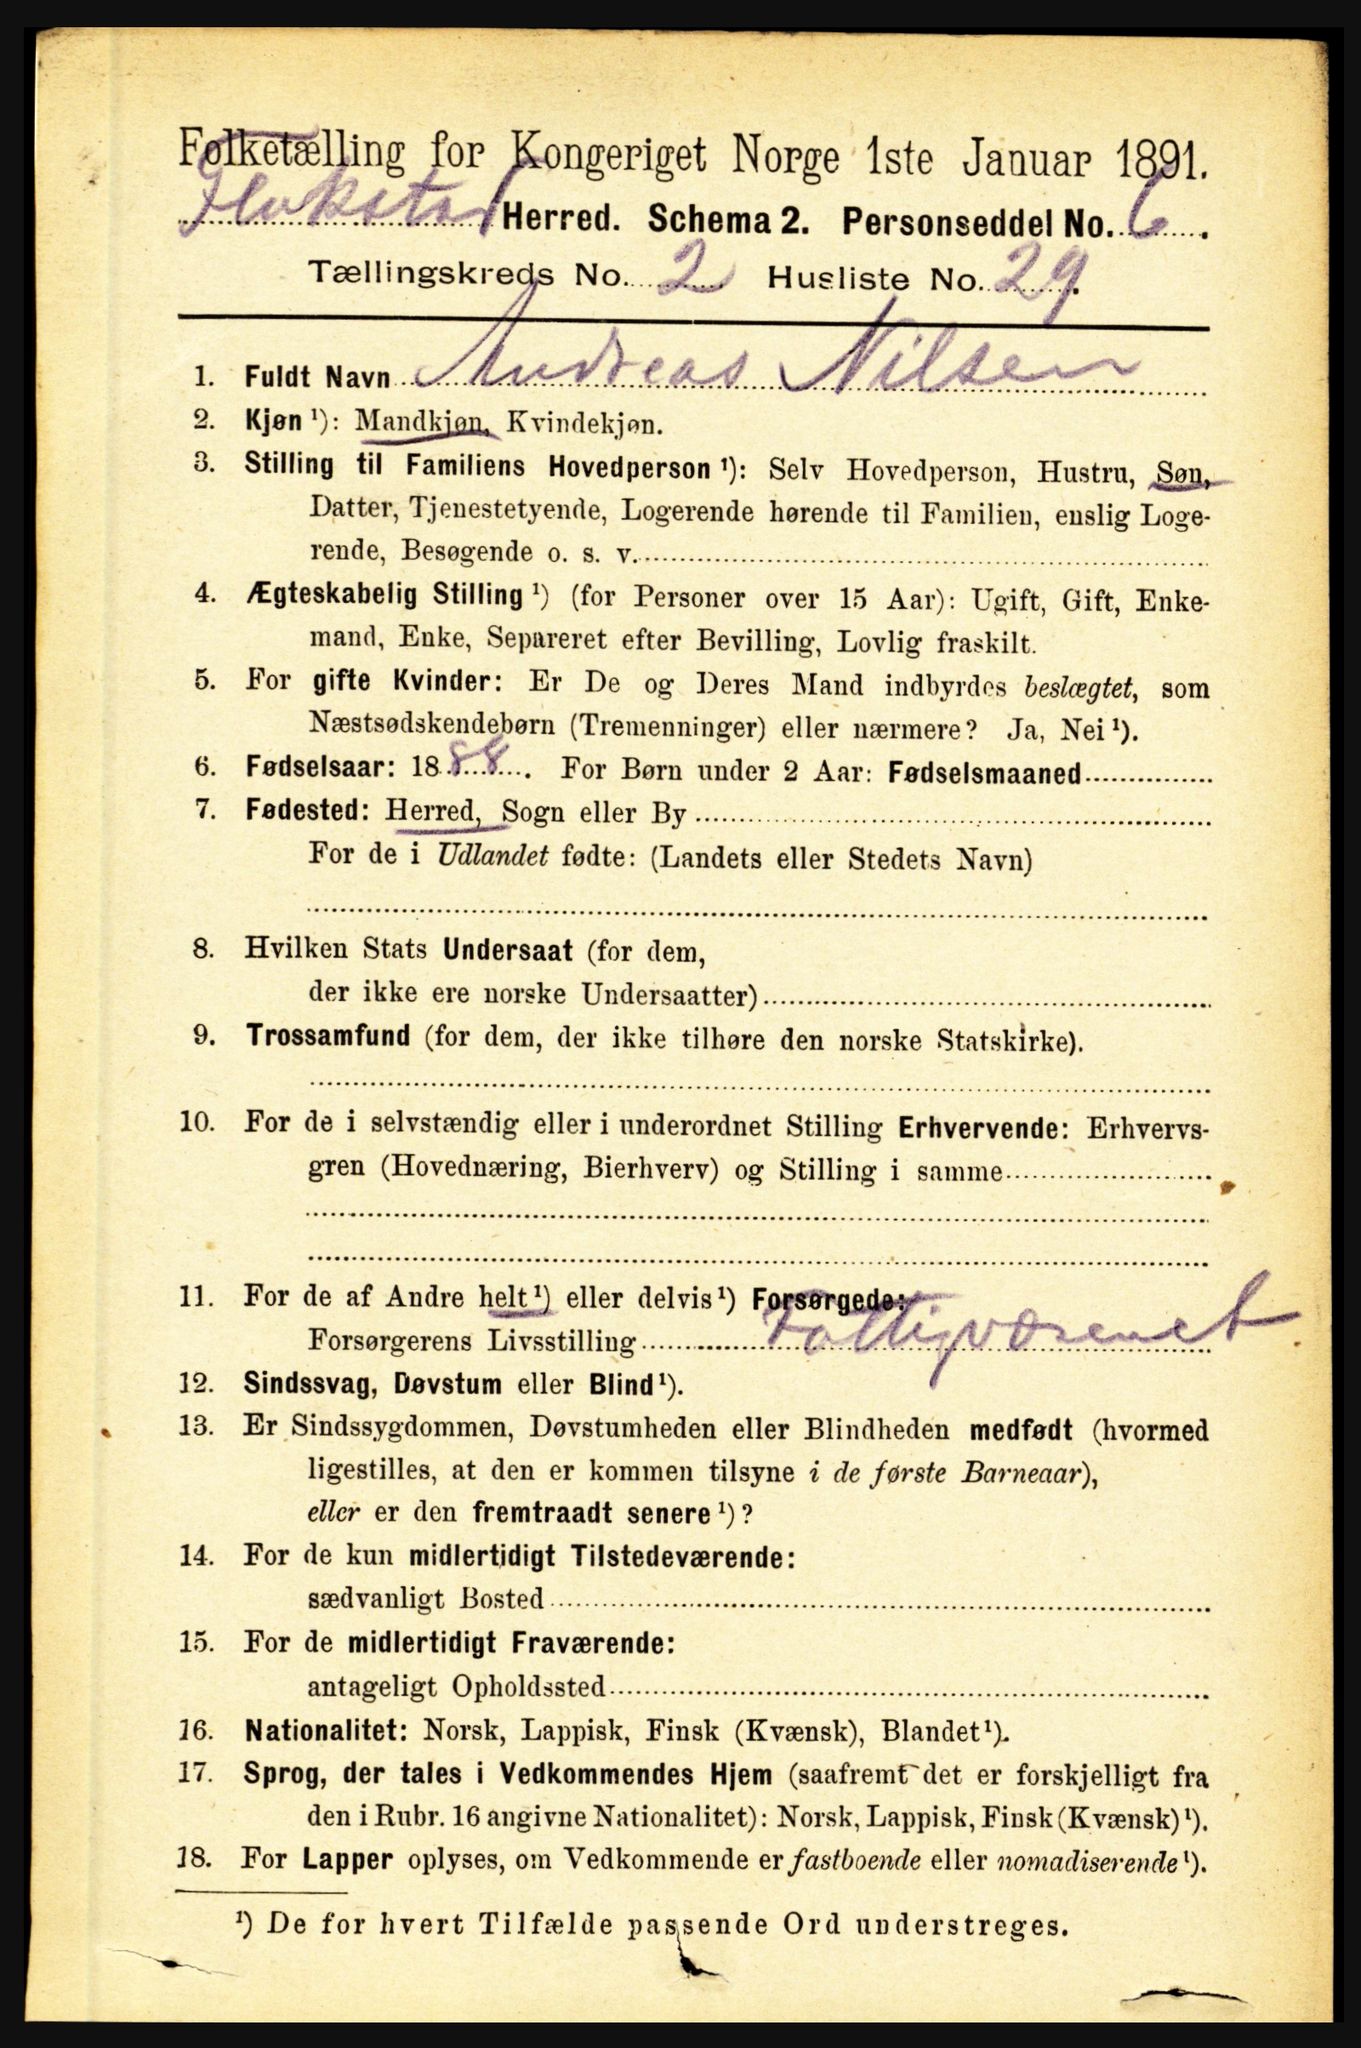 Folketælling for Kongeriget Norge 1ste Januar 1891.
Flakstad Herred. Schema 2. Personseddel No. 6.
Tællingskreds No. 2 Husliste No. 29.
1. Fuldt Navn Andreas Nilsen
2. Kjøn ¹): Mandkjøn, Kvindekjøn.
3. Stilling til Familiens Hovedperson ¹): Selv Hovedperson, Hustru, Søn,
Datter, Tjenestetyende, Logerende hørende til Familien, enslig Loge-
rende, Besøgende o. s. v.
4. Ægteskabelig Stilling ¹) (for Personer over 15 Aar): Ugift, Gift, Enke-
mand, Enke, Separeret efter Bevilling, Lovlig fraskilt.
5. For gifte Kvinder: Er De og Deres Mand indbyrdes beslægtet, som
Næstsødskendebørn (Tremenninger) eller nærmere? Ja, Nei ¹).
6. Fødselsaar: 1888. For Børn under 2 Aar: Fødselsmaaned
7. Fødested: Herred, Sogn eller By
For de i Udlandet fødte: (Landets eller Stedets Navn)
8. Hvilken Stats Undersaat (for dem,
der ikke ere norske Undersaatter)
9. Trossamfund (for dem, der ikke tilhøre den norske Statskirke).
10. For de i selvstændig eller i underordnet Stilling Erhvervende: Erhvervs-
gren (Hovednæring, Bierhverv) og Stilling i samme
11. For de af Andre helt ¹) eller delvis ¹) Forsørgede:
Forsørgerens Livsstilling Fattigvæsenet
12. Sindssvag, Døvstum eller Blind ¹).
13. Er Sindssygdommen, Døvstumheden eller Blindheden medfødt (hvormed
ligestilles, at den er kommen tilsyne i de første Barneaar),
eller er den fremtraadt senere ¹)?
14. For de kun midlertidigt Tilstedeværende:
sædvanligt Bosted
15. For de midlertidigt Fraværende:
antageligt Opholdssted
16. Nationalitet: Norsk, Lappisk, Finsk (Kvænsk), Blandet ¹).
17. Sprog, der tales i Vedkommendes Hjem (saafremt det er forskjelligt fra
den i Rubr. 16 angivne Nationalitet): Norsk, Lappisk, Finsk (Kvænsk) ¹).
18. For Lapper oplyses, om Vedkommende er fastboende eller nomadiserende ¹).
¹) De for hvert Tilfælde passende Ord understreges.